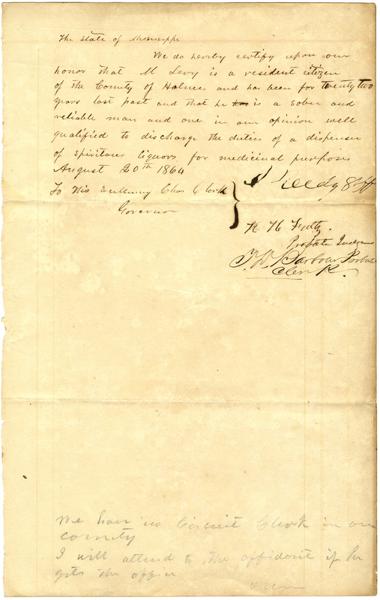 The State of Mississippi
We do hereby certify upon our
honor that M Levy is a resident citizen
of the County of Holmes and has been for twenty two
years last past and that he is a sober and
reliable man and one in our opinion well
qualified to discharge the duties of a dispenser
of spiritous liquors for medicinal purposes
August 20th 1864
To His Chas Clark
Governor
H H
Probate Judge
Barbour Probate
Clerk
We have no Circuit Clerk in our
County
I will attend to the affidavit if he
gets the office